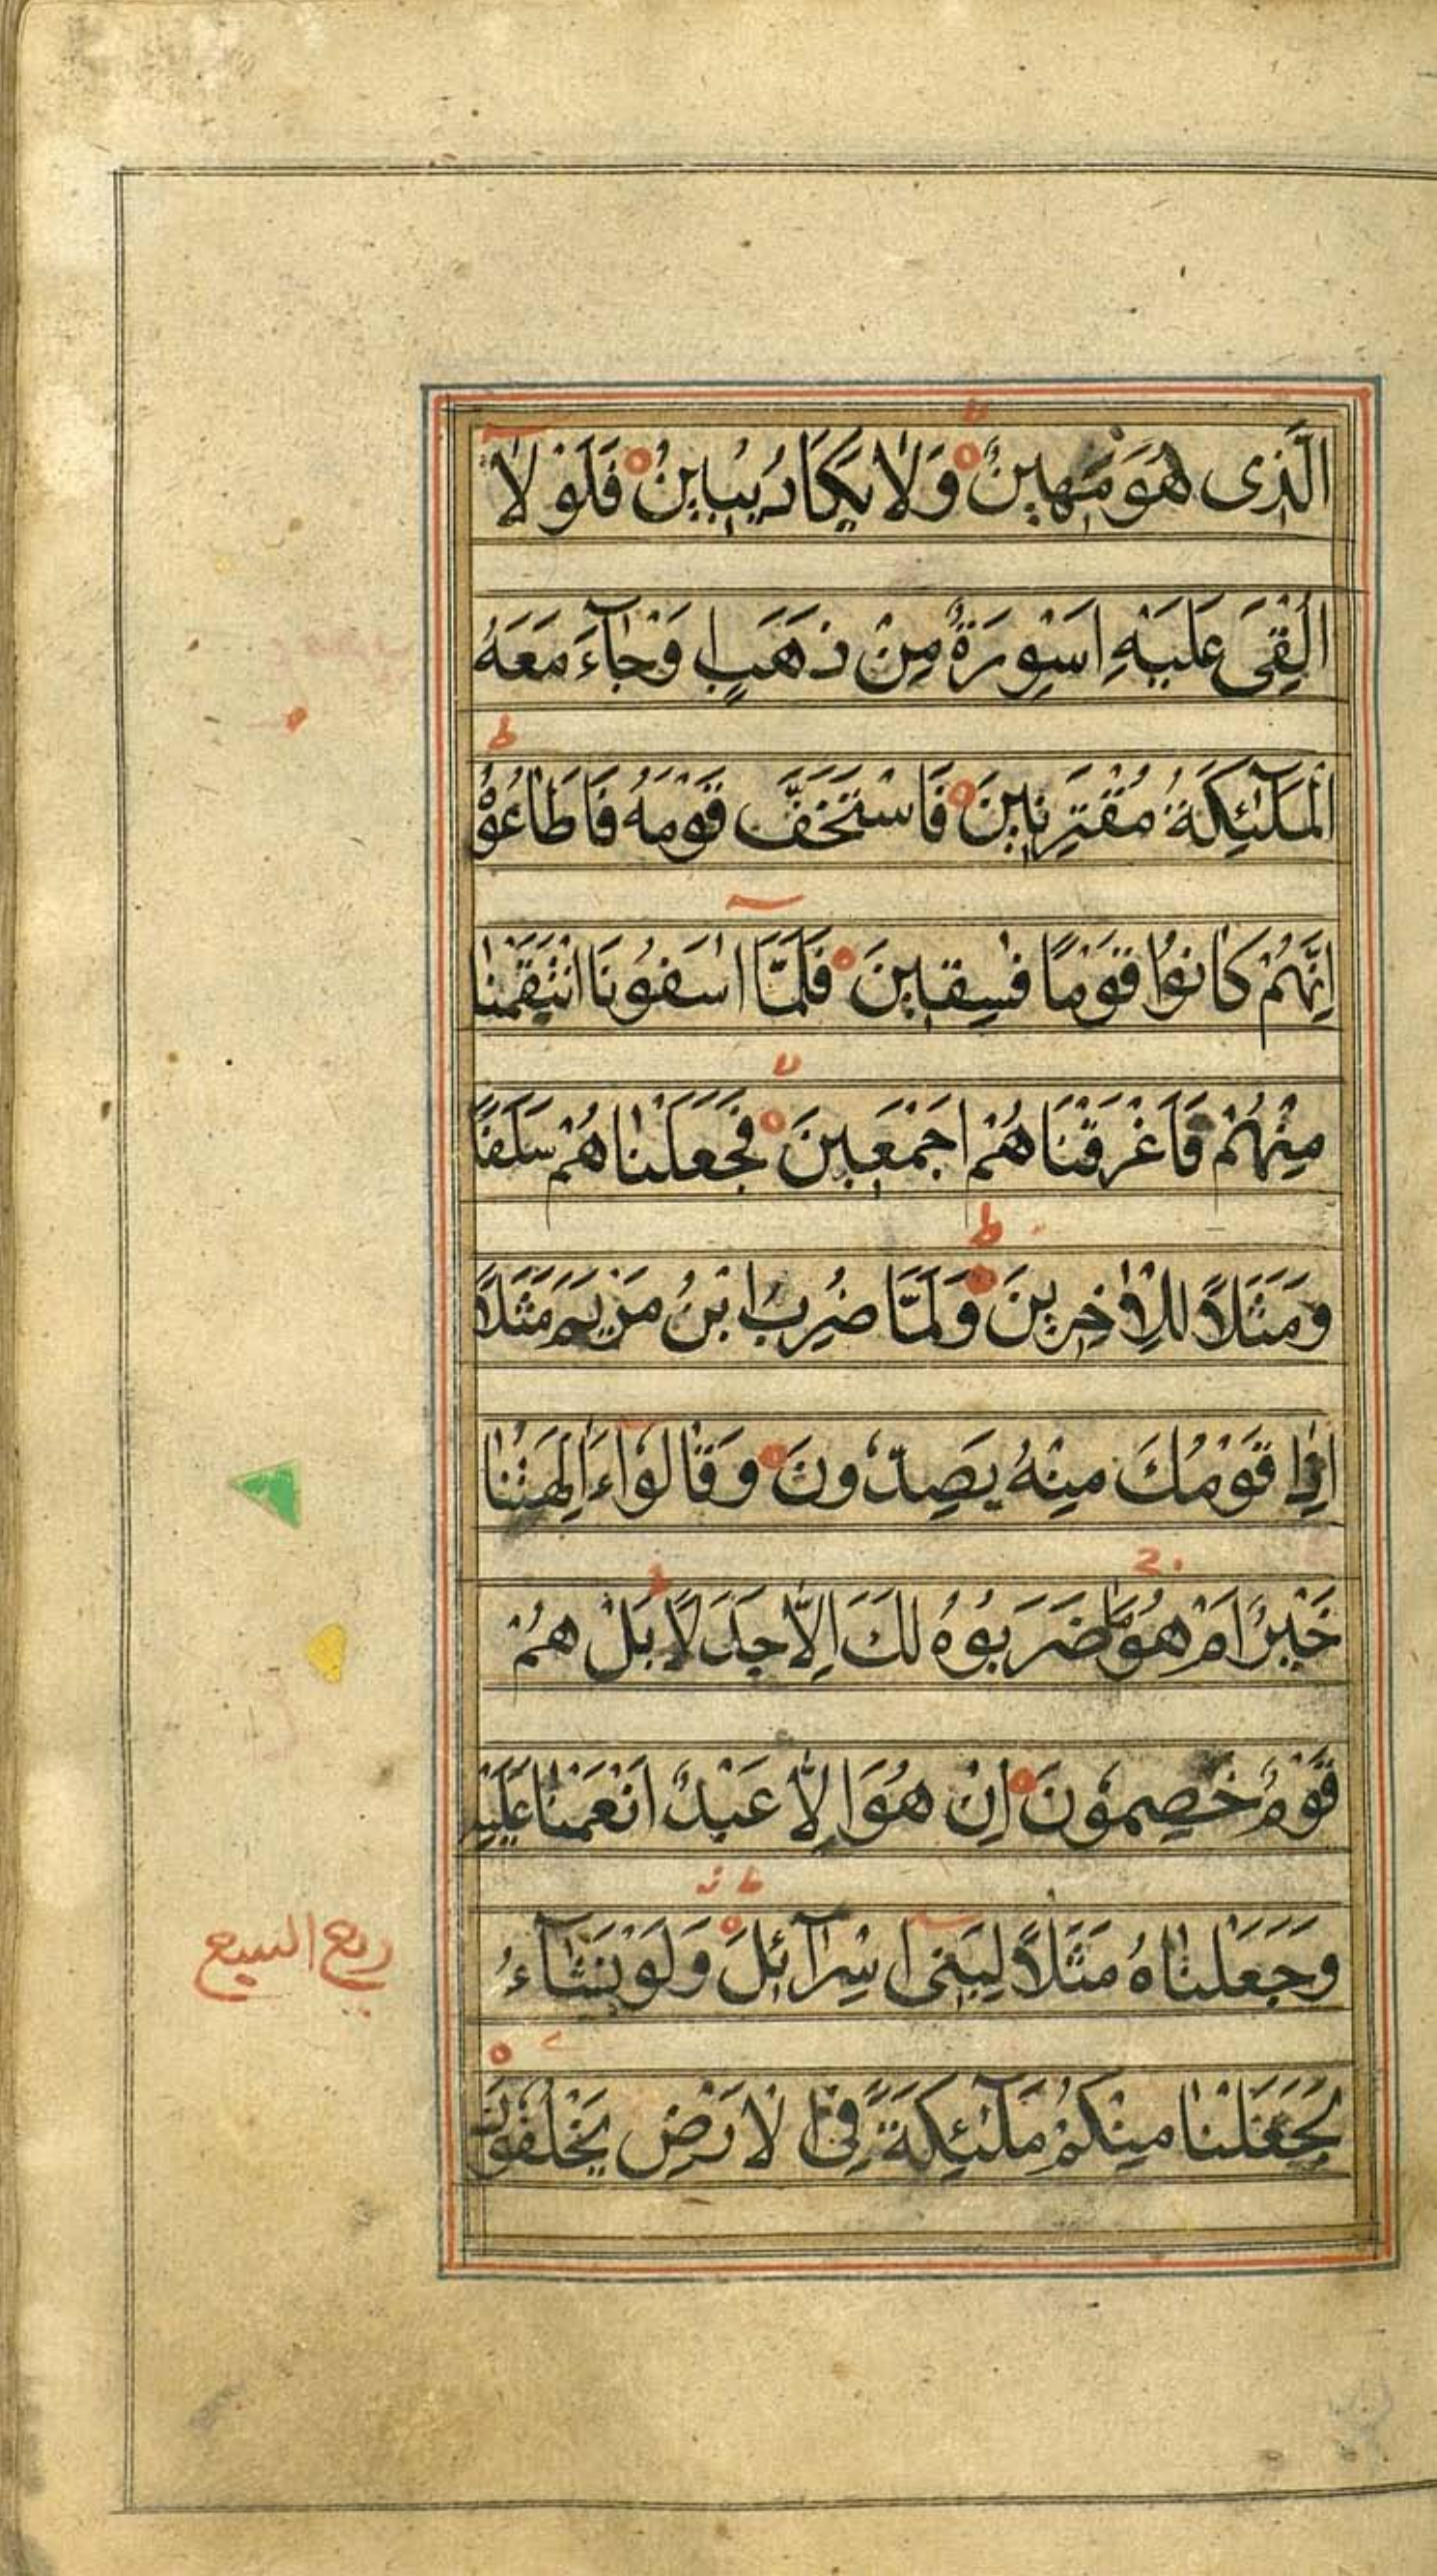 الَّذِى هُوَ مَهِينٌ وَلَا يَكَادُ يُبِينُ فَلَوْ لَا
اُلْقِىَ عَلَيْهِ اَسْوِرَةٌ مِنْ ذَهَبٍ اَوْ جَآءَ مَعَهُ
الْمَلٰٓئِكَةُ مُقْتَرِنِينَ فَاسْتَخَفَّ قَوْمَهُ فَاَطَاعُوْهُ
اِنَّهُمْ كَانُوْا قَوْمًا فٰسِقِينَ فَلَمَّا اٰسَفُوْنَا انْتَقَمْنَا
مِنْهُمْ فَاَغْرَقْنَاهُمْ اَجْمَعِينَ فَجَعَلْنَاهُمْ سَلَفًا
وَمَثَلًا لِلْاٰخِرِينَ وَلَمَّا ضُرِبَ ابْنُ مَرْيَمَ مَثَلًا
اِذَا قَوْمُكَ مِنْهُ يَصِدُّونَ وَقَالُوْا ءَاٰلِهَتُنَا
خَيْرٌ اَمْ هُوَ مَا ضَرَبُوْهُ لَكَ اِلَّا جَدَلًا بَلْ هُمْ
قَوْمٌ خَصِمُوْنَ اِنْ هُوَ اِلَّا عَبْدٌ اَنْعَمْنَا عَلَيْهِ
وَجَعَلْنَاهُ مَثَلًا لِبَنِى اِسْرَآئِلَ وَلَوْ نَشَآءُ
لَجَعَلْنَا مِنْكُمْ مَلٰٓئِكَةً فِى الْاَرْضِ يَخْلُفُوْنَ
ربع السبع